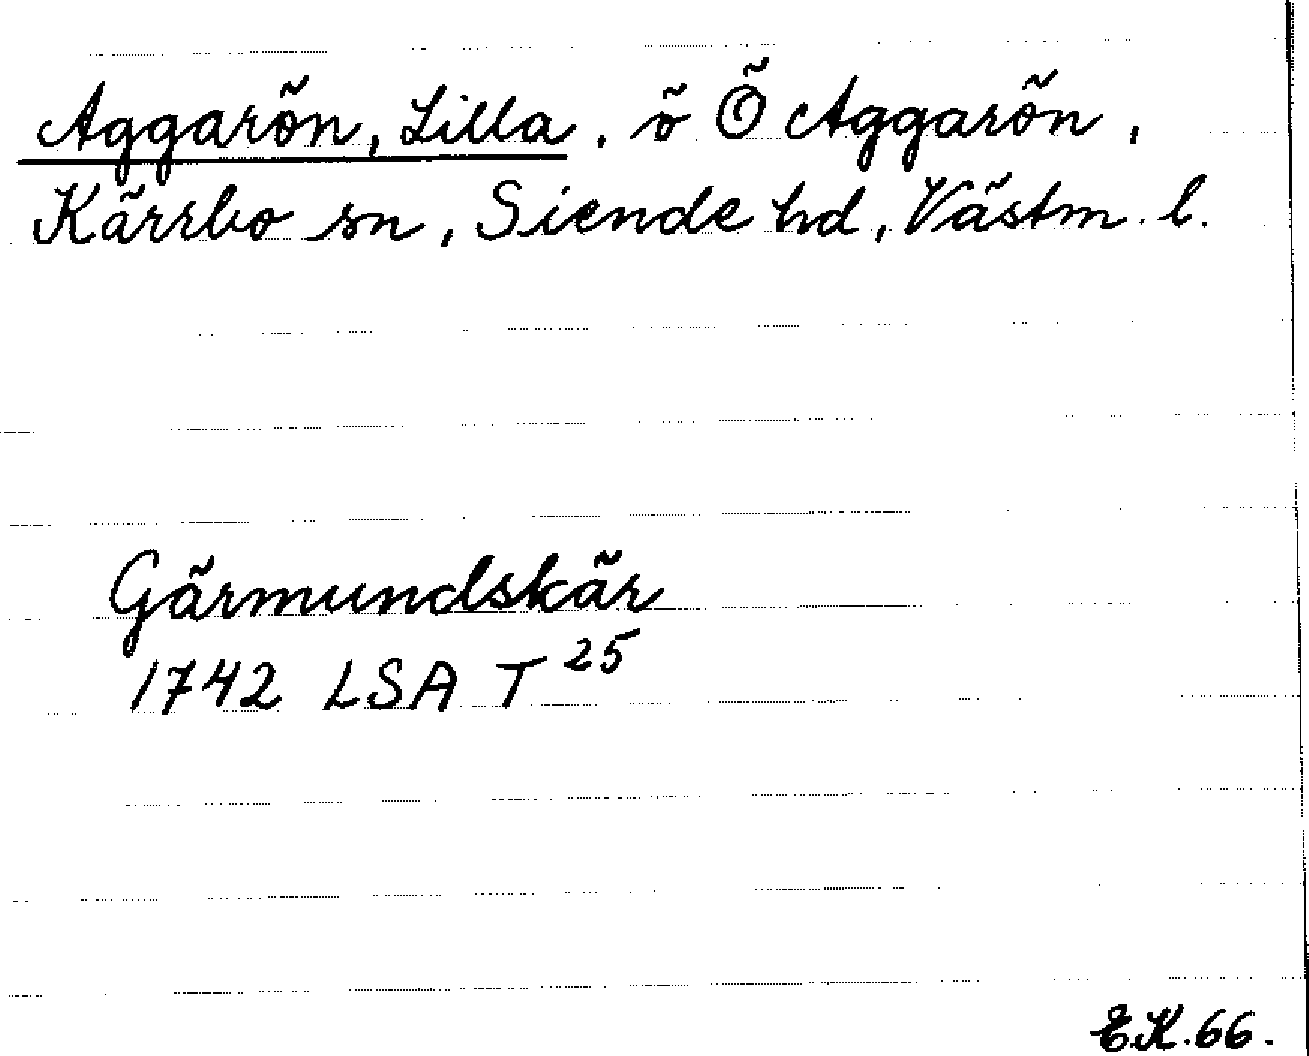 Aggarön, Lilla, ö Ö Aggarön,
Kärrbo sn, Siende hd, Västm. l.
Gärmundskär
1742 LSA T 25
E.K. 66.